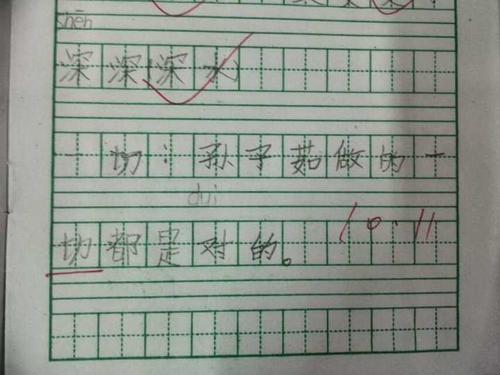 shēn
深深深水
一切：孙子茹做的一
duì
切都是对的。 10.11